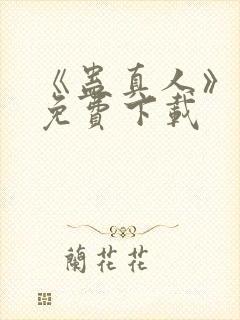 《蛊真人》
免費下載
蘭花花